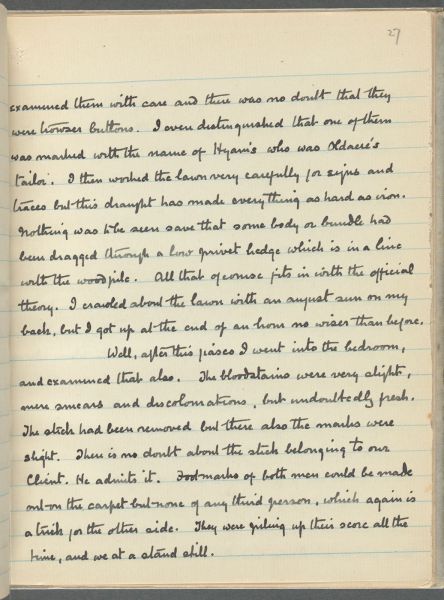 27
examined them with care and there was no doubt that they
were trowser buttons. I even distinguished that one of them
was marked with the name of Hyams who was Oldacre's
tailor. I then worked the lawn very carefully for signs and
traces but this draught has made everything as hard as iron.
Nothing was to be seen save that some body or bundle had
been dragged through a low privet hedge which is in a line
with the woodpile. All that of course fits in with the official
theory. I crawled about the lawn with an august sun on my
back, but I got up at the end of an hour no wiser than before.
Well, after this fiasco I went into the bedroom,
and examined that also. The bloodstains were very slight,
mere smears and discolorations, but undoubtedly fresh.
The stick had been removed but there also the marks were
slight. There is no doubt about the stick belonging to our
Client. He admits it. Footmarks of both men could be made
out on the carpet but none of any third person, which again is
a trick for the other side. They were piling up their score all the
time, and we at a stand still.